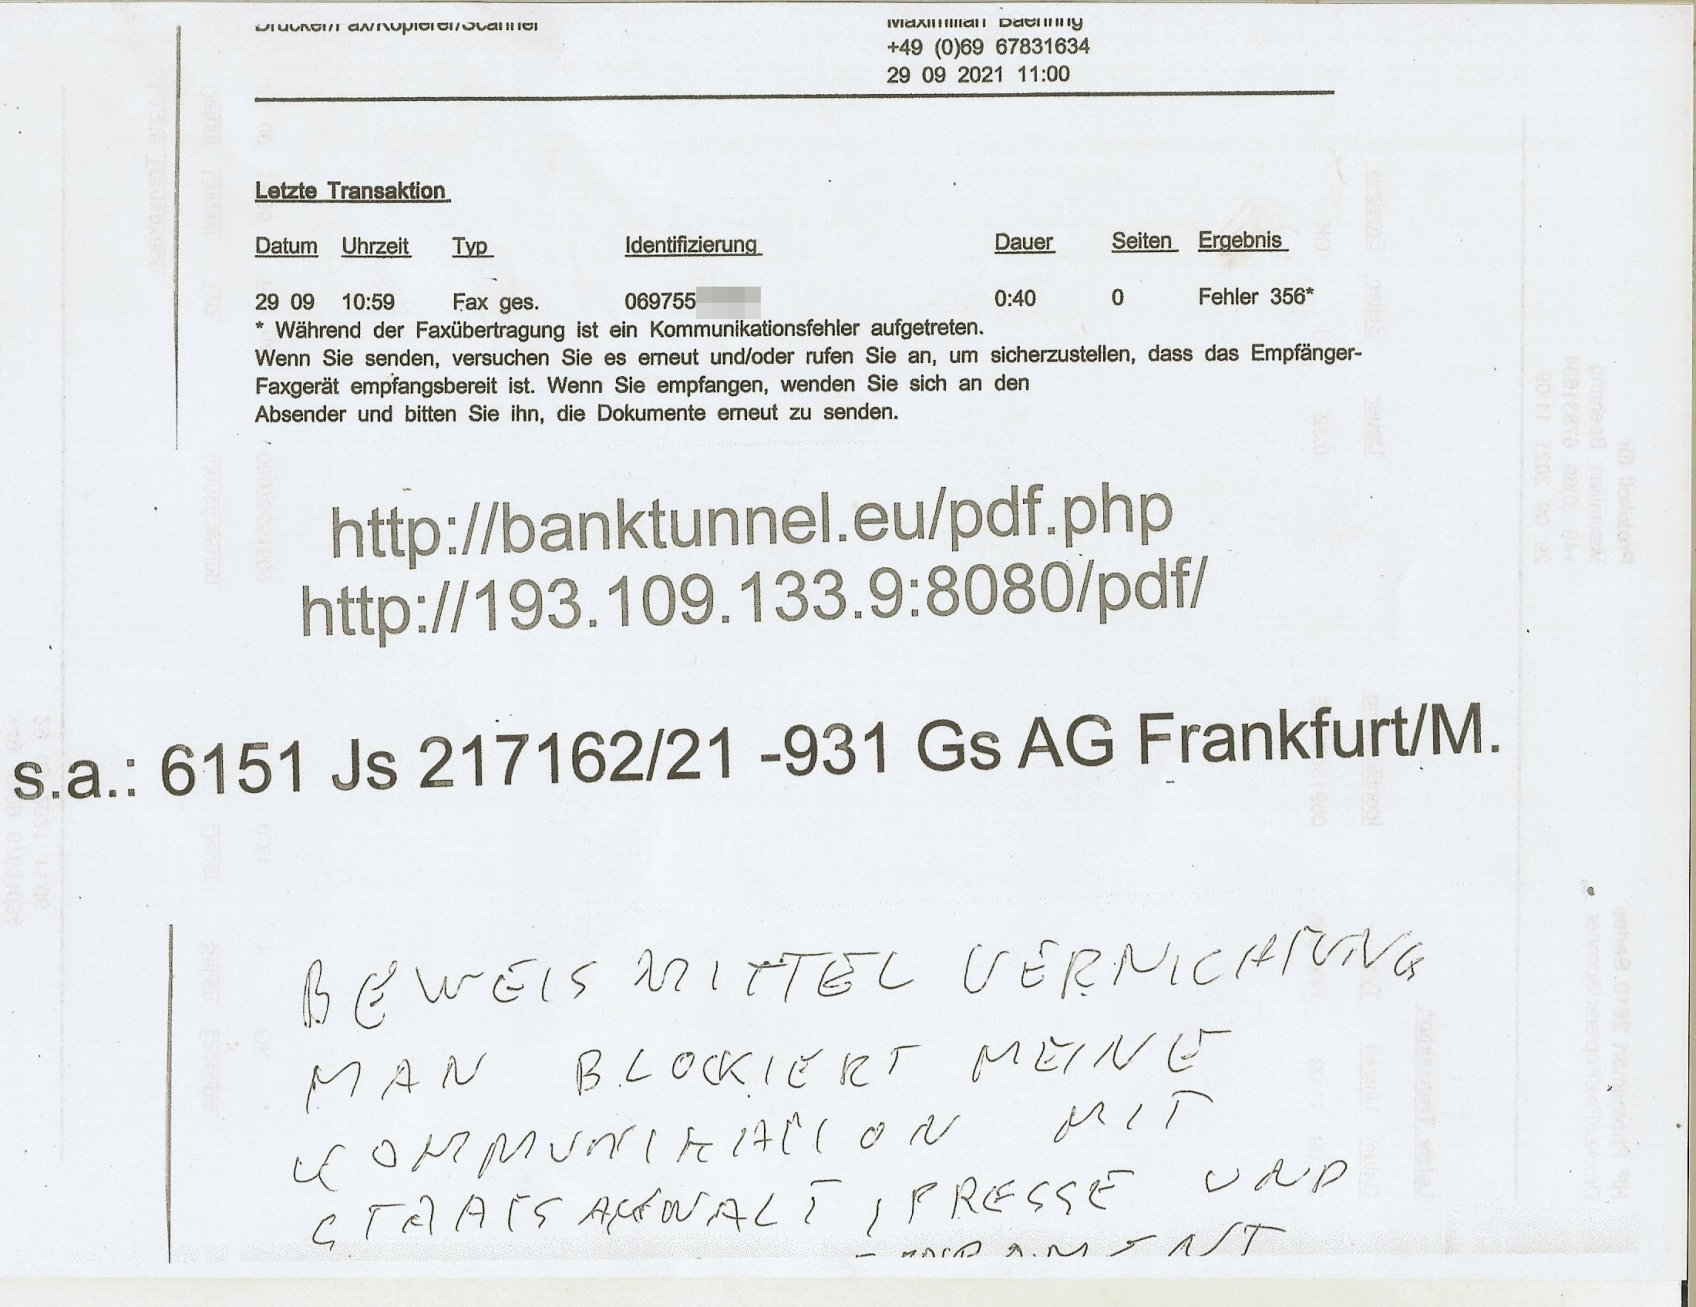 Drucker/Fax/Kopierer/Scanner
Maximilian Baehring
+49 (0)69 67831634
29 09 2021 11:00
Letzte Transaktion
Datum Uhrzeit Typ Identifizierung Dauer Seiten Ergebnis
29 09 10:59 Fax ges. 069755 0:40 0 Fehler 356*
* Während der Faxübertragung ist ein Kommunikationsfehler aufgetreten.
Wenn Sie senden, versuchen Sie es erneut und/oder rufen Sie an, um sicherzustellen, dass das Empfänger-
Faxgerät empfangsbereit ist. Wenn Sie empfangen, wenden Sie sich an den
Absender und bitten Sie ihn, die Dokumente erneut zu senden.
http://banktunnel.eu/pdf.php
http://193.109.133.9:8080/pdf/
s.a.: 6151 Js 217162/21 -931 Gs AG Frankfurt/M.
BEWEISMITTEL VERNICHTUNG
MAN BLOCKIERT MEINE
KOMMUNIKATION MIT
STAATSANWALT, PRESSE UND